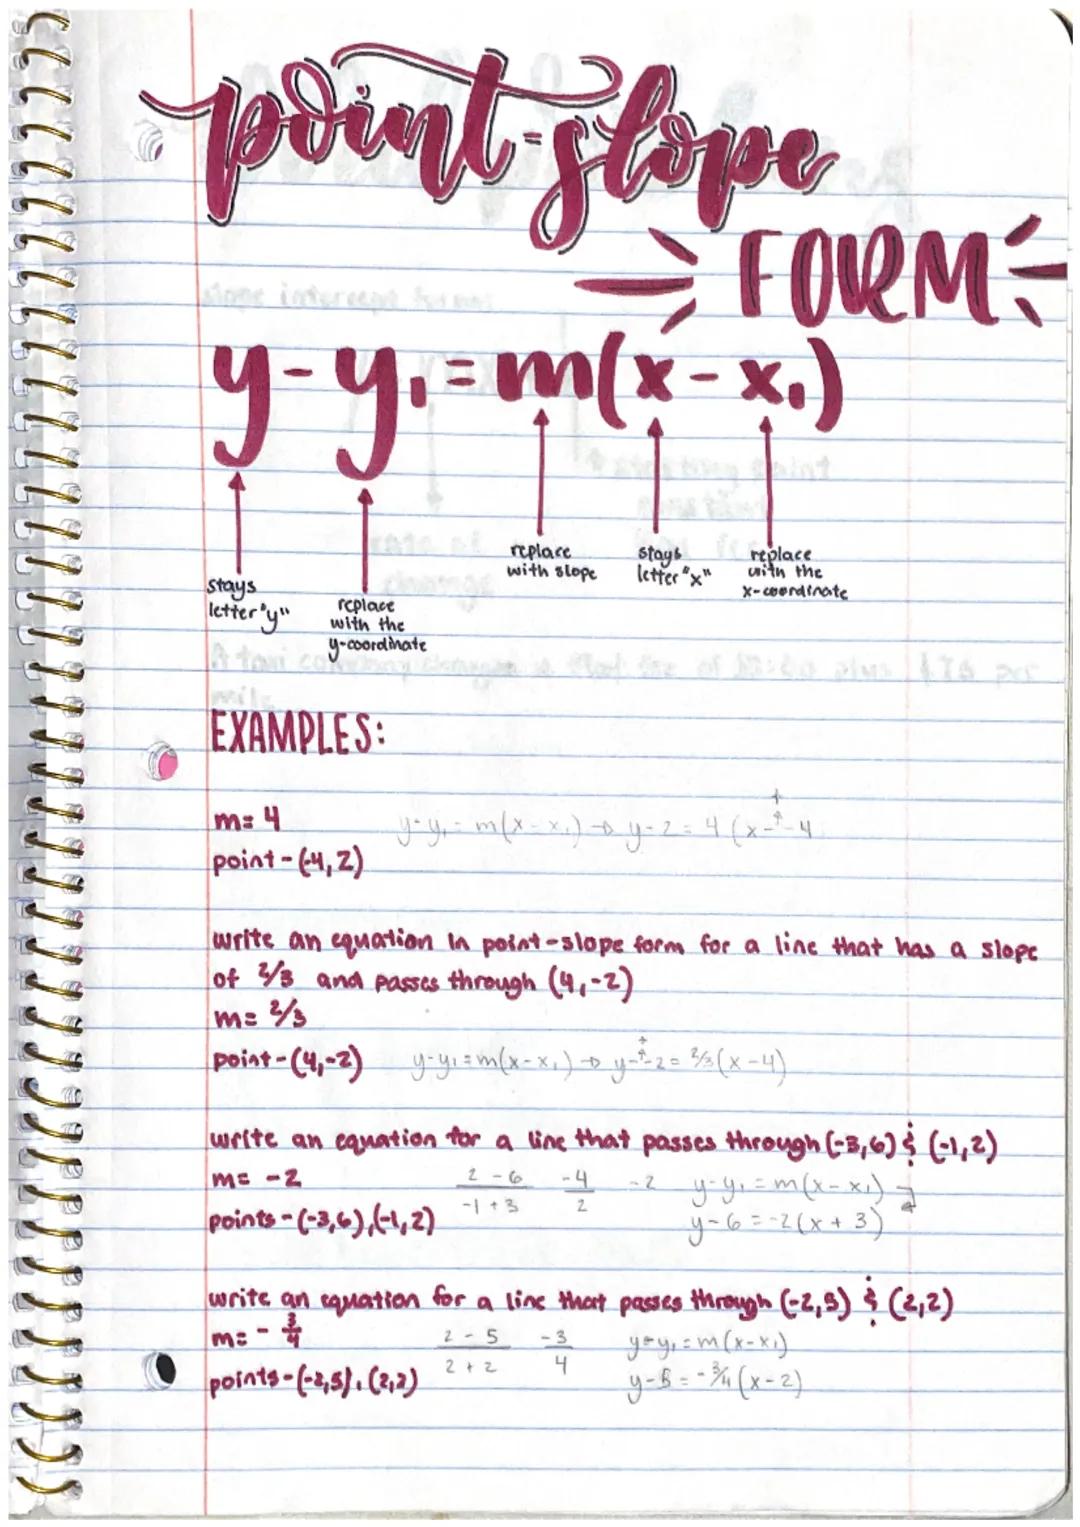 point-slope
FORM
y - y₁ = m(x - x₁)
stays letter "y"
replace with the y-coordinate
replace with slope
stays letter "x"
replace with the x-coordinate
EXAMPLES:
m= 4
y-y₁ = m(x-x₁) → y-2 = 4(x-⁺-4
point - (-4, 2)
write an equation in point-slope form for a line that has a slope
of 2/3 and passes through (4,-2)
m= 2/3
point - (4,-2) y-y₁=m(x-x₁) → y-⁺-2= 2/3(x-4)
write an equation for a line that passes through (-3,6) & (-1,2)
m= -2 2 - 6 / -1 + 3 -4 / 2 -2 y-y₁ = m(x-x₁)
points - (-3,6),(-1,2) y-6 = -2(x + 3)
write an equation for a line that passes through (-2,5) & (2,2)
m= - 3/4 2 - 5 / 2 + 2 -3 / 4 y-y₁ = m(x-x₁)
points - (-2,5), (2,2) y-5 = -3/4(x-2)